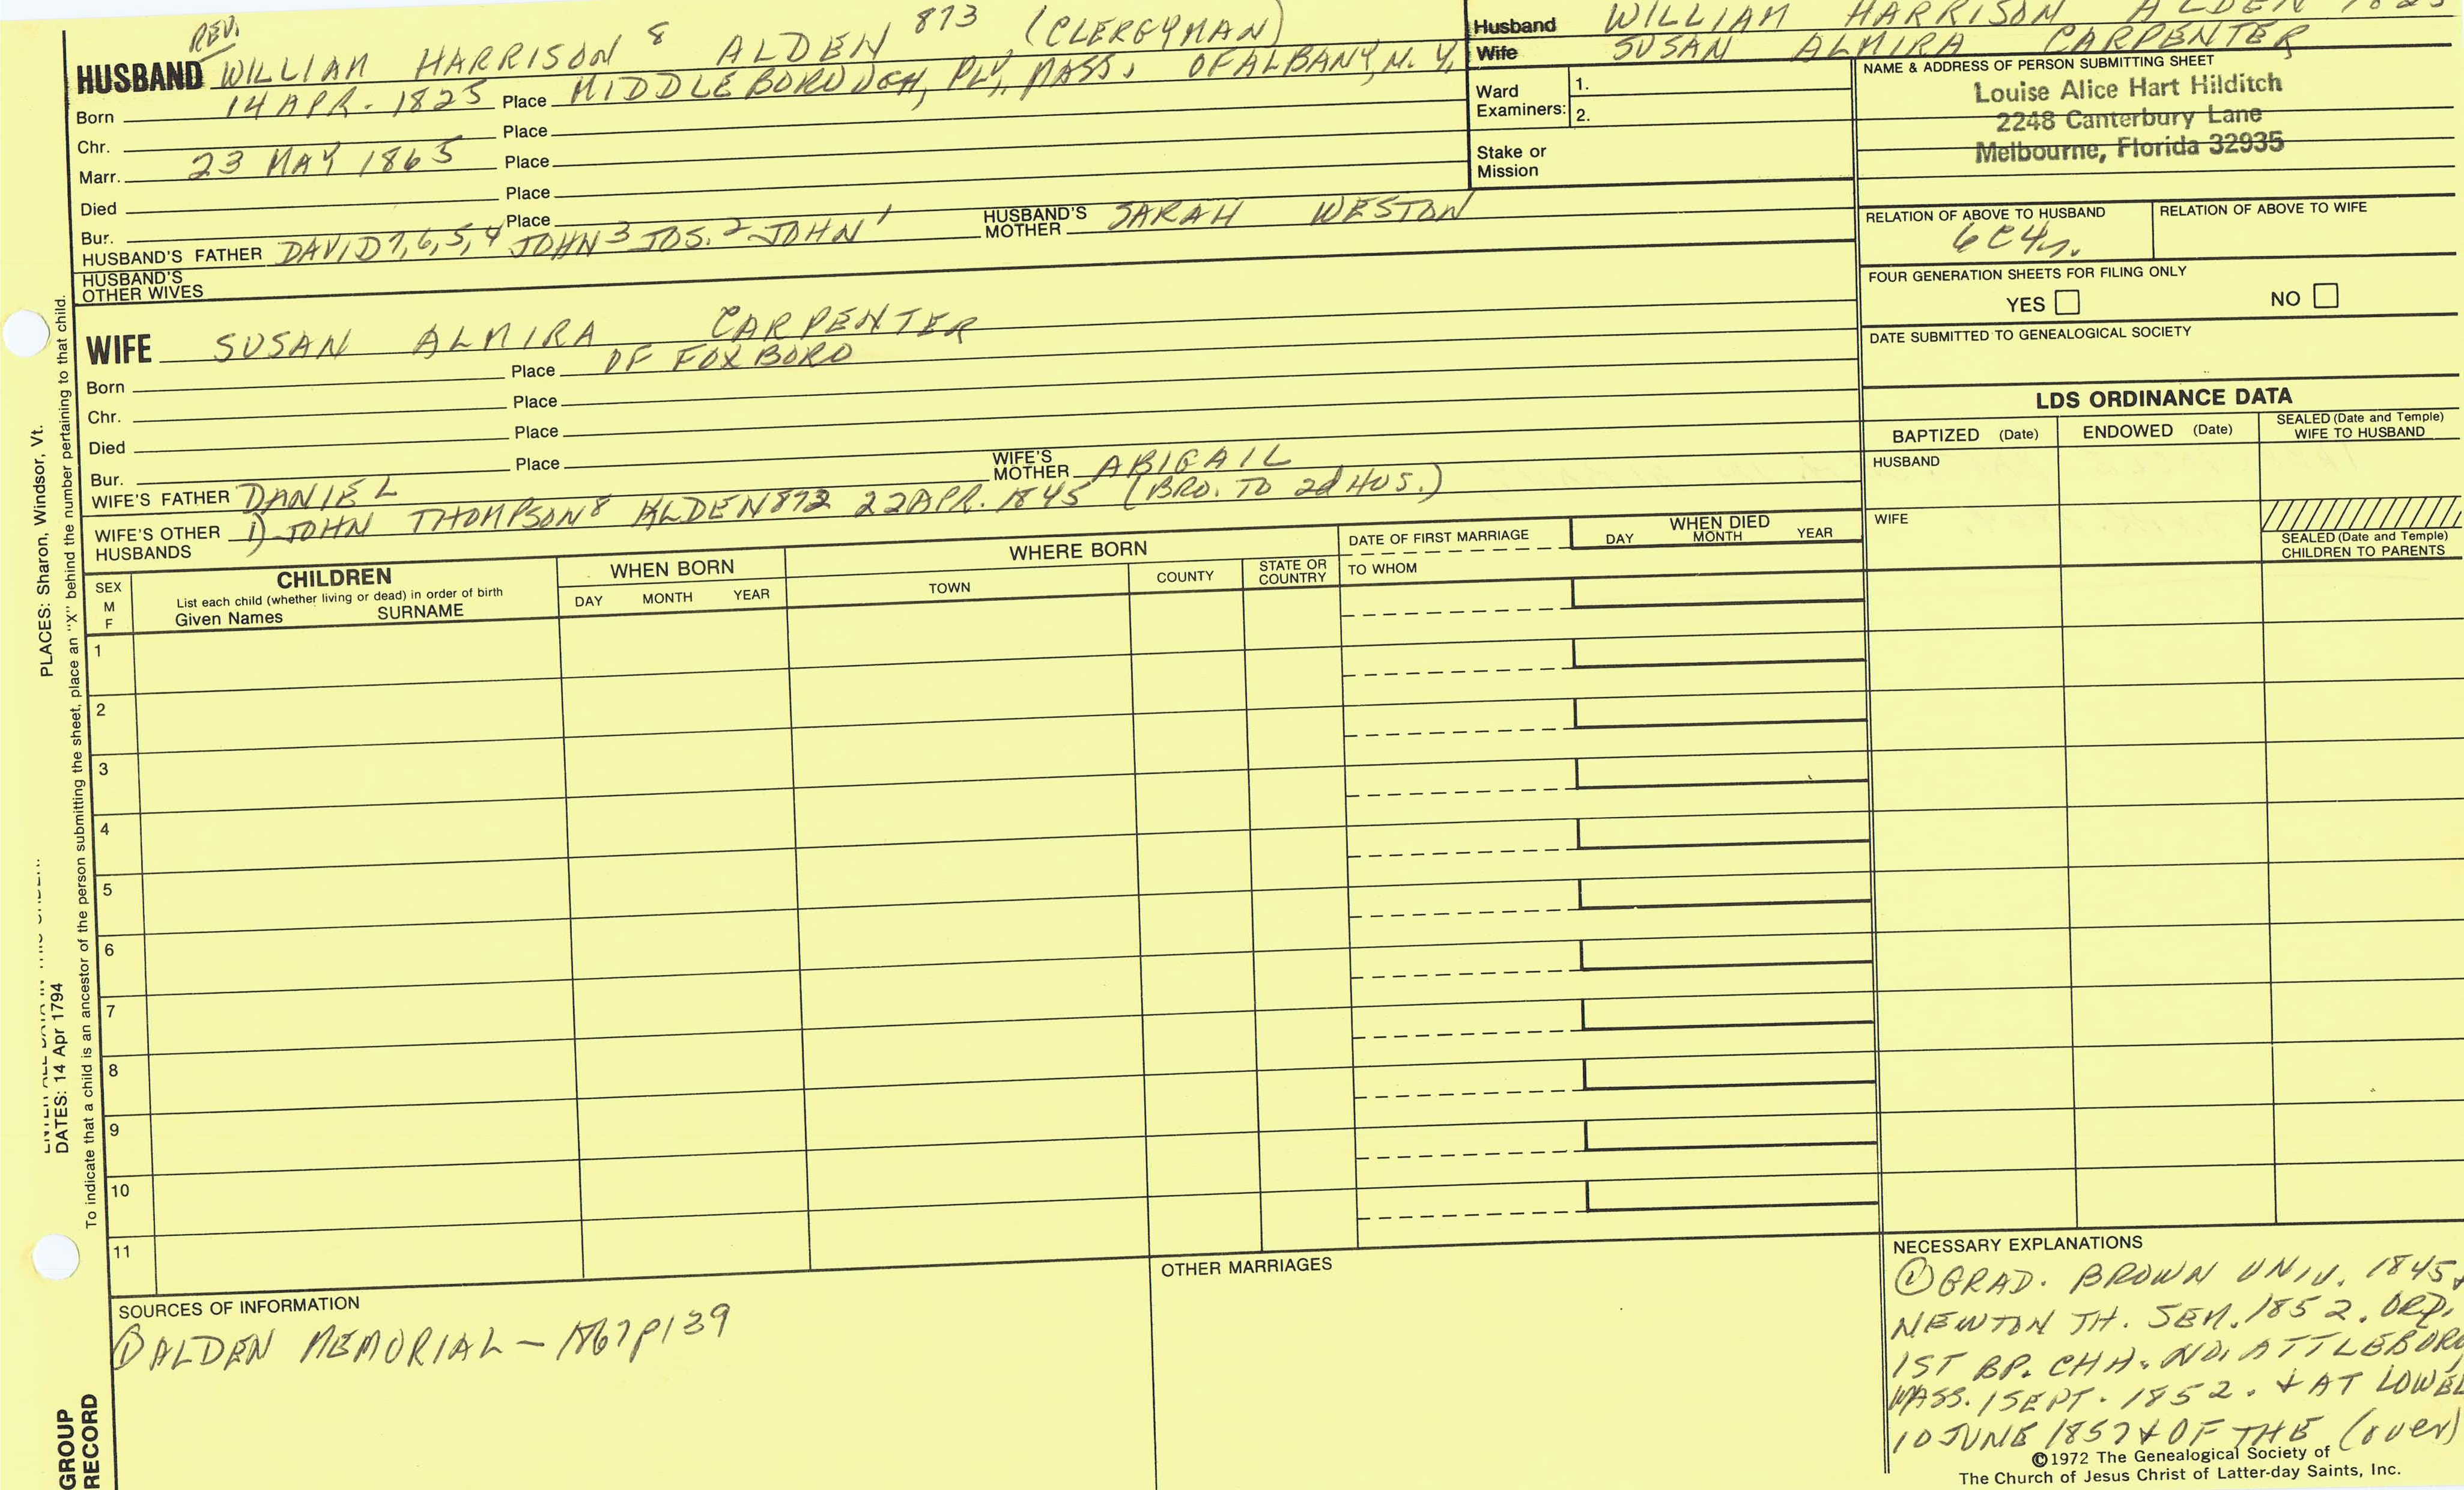 REV.
HUSBAND WILLIAM HARRISON 8 ALDEN 873 (CLERGYMAN)
Born 14 APR. 1825 Place MIDDLEBOROUGH, PLY, MASS. OF ALBANY, N. Y.
Chr. Place
Marr. 23 MAY 1865 Place
Died Place
Bur. Place
HUSBAND'S FATHER DAVID 7, 6, 5, 4 JOHN 3 JOS. 2 JOHN 1 HUSBAND'S MOTHER SARAH WESTON
HUSBAND'S OTHER WIVES
WIFE SUSAN ALMIRA CARPENTER
Born Place OF FOXBORO
Chr. Place
Died Place
Bur. Place
WIFE'S FATHER DANIEL WIFE'S MOTHER ABIGAIL
WIFE'S OTHER HUSBANDS 1) JOHN THOMPSON 8 ALDEN 872 22 APR. 1845 (BRO. TO 2d HUS.)
Husband WILLIAM HARRISON ALDEN 1825
Wife SUSAN ALMIRA CARPENTER
Ward Examiners: 1.
2.
Stake or Mission
NAME & ADDRESS OF PERSON SUBMITTING SHEET
Louise Alice Hart Hilditch
2248 Canterbury Lane
Melbourne, Florida 32935
RELATION OF ABOVE TO HUSBAND RELATION OF ABOVE TO WIFE
6C4r.
FOUR GENERATION SHEETS FOR FILING ONLY
YES NO
DATE SUBMITTED TO GENEALOGICAL SOCIETY
LDS ORDINANCE DATA
BAPTIZED (Date) ENDOWED (Date) SEALED (Date and Temple) WIFE TO HUSBAND
HUSBAND
WIFE
SEALED (Date and Temple) CHILDREN TO PARENTS
SEX M F
CHILDREN
List each child (whether living or dead) in order of birth
Given Names SURNAME
WHEN BORN
DAY MONTH YEAR
WHERE BORN
TOWN COUNTY STATE OR COUNTRY
DATE OF FIRST MARRIAGE
TO WHOM
WHEN DIED
DAY MONTH YEAR
1
2
3
4
5
6
7
8
9
10
11
SOURCES OF INFORMATION
① ALDEN MEMORIAL - 1867 p139
OTHER MARRIAGES
NECESSARY EXPLANATIONS
① GRAD. BROWN UNIV. 1845 &
NEWTON TH. SEM. 1852. ORD.
1ST BP. CHH. NO. ATTLEBORO
MASS. 1 SEPT. 1852. + AT LOWEL
10 JUNE 1857 + OF THE (over)
©1972 The Genealogical Society of
The Church of Jesus Christ of Latter-day Saints, Inc.
PLACES: Sharon, Windsor, Vt.
DATES: 14 Apr 1794
To indicate that a child is an ancestor of the person submitting the sheet, place an "X" behind the number pertaining to that child.
GROUP
RECORD